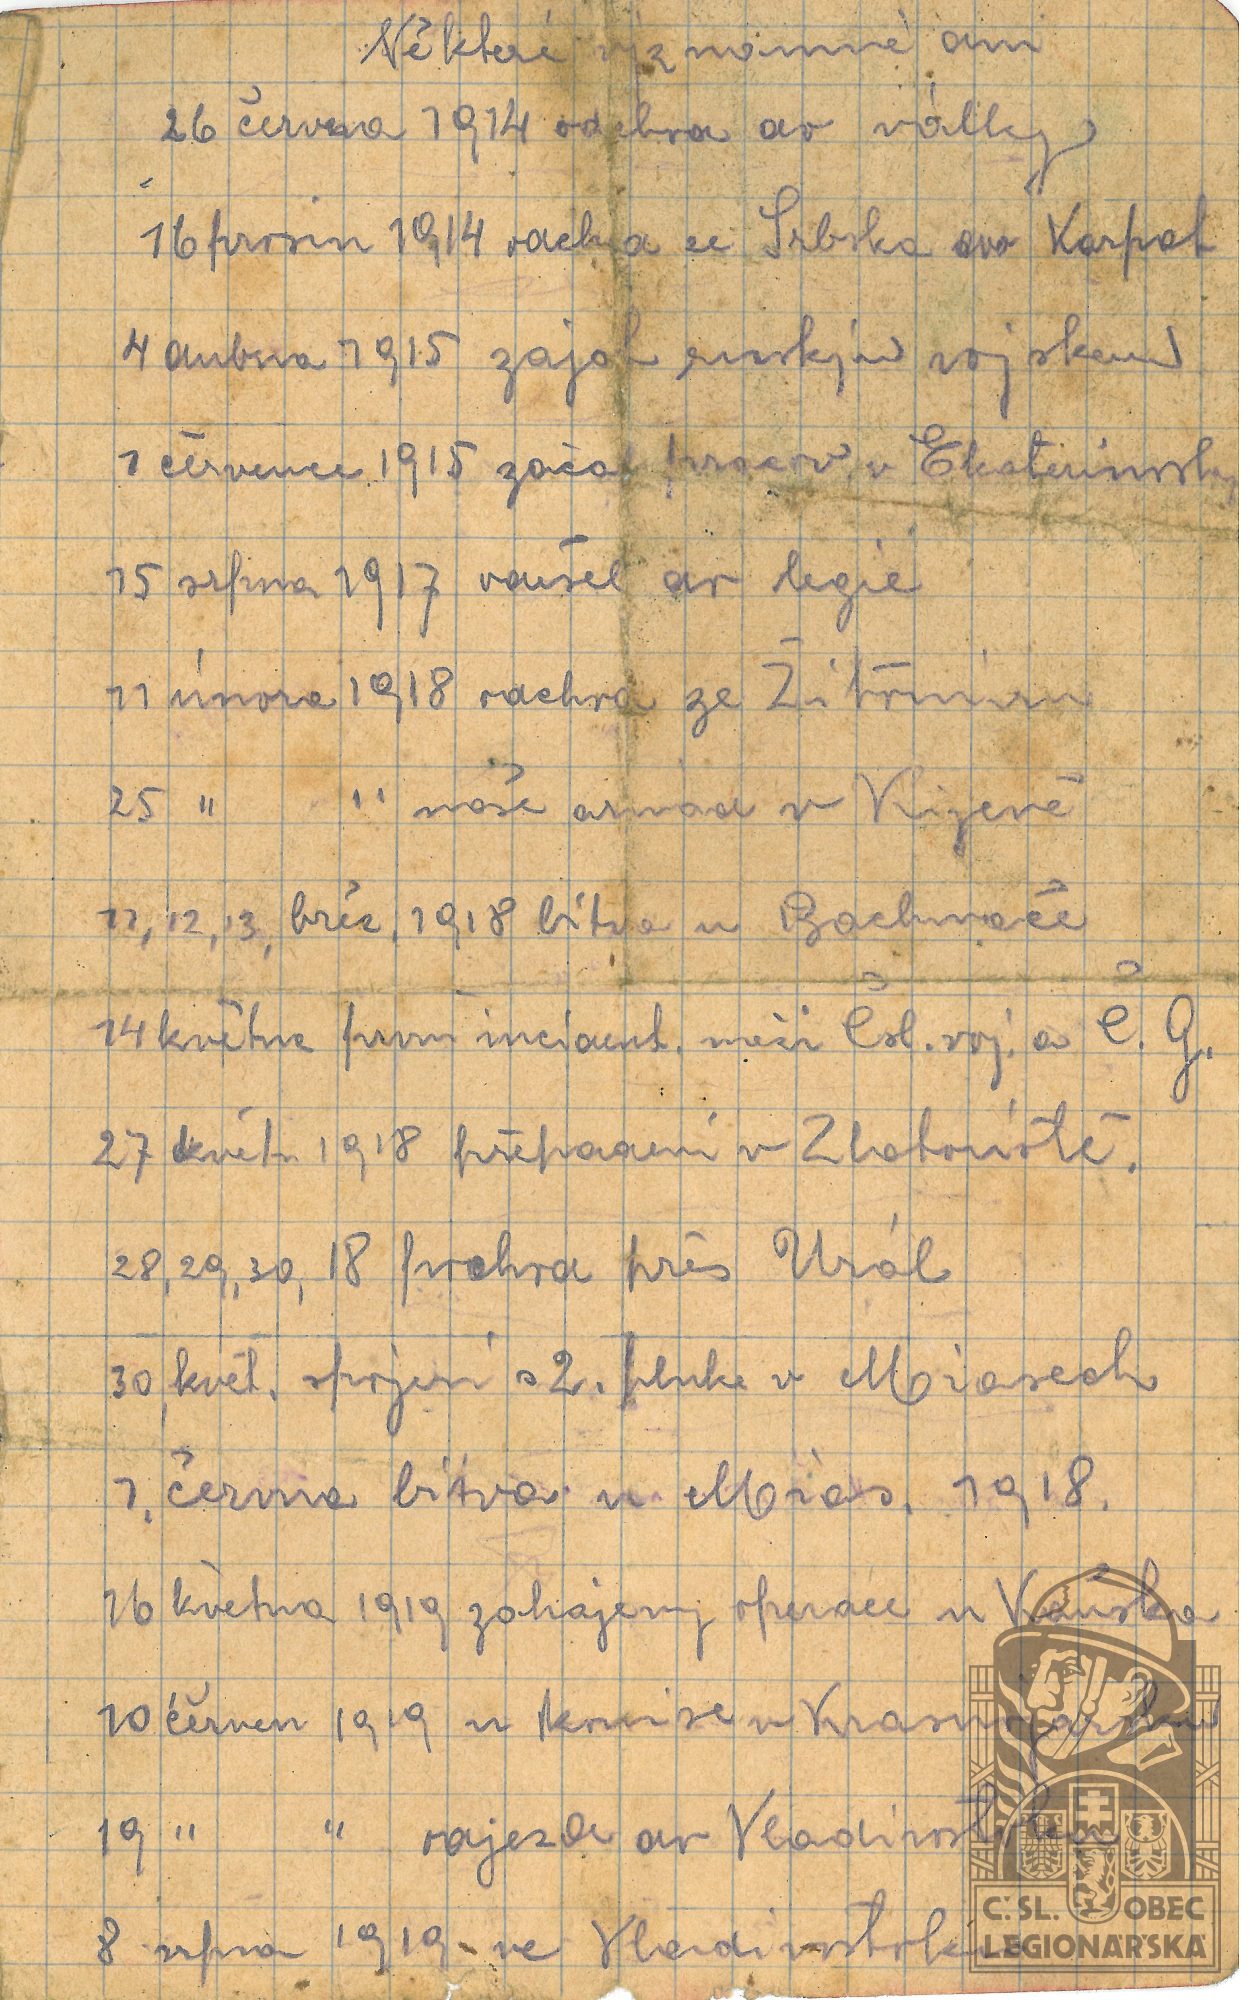 Některé významné dni
26 června 1914 odchod do války
16 prosin 1914 odchod ze Srbska do Karpat
4 dubna 1915 zajat ruským vojskem
1 července 1915 začal pracov. v Ekaterinosla
15 srpna 1917 vstoupil do legií
11 února 1918 odchod ze Žitomíru
25 " " naše armad v Kijevě
11, 12, 13, břez. 1918 bitva u Bachmače
14 května první incident. mezi Čsl. voj. a Č. G.,
27 květn 1918 přepadení v Zlatoústě.
28, 29, 30, 18 prchod přes Urál
30, květ. spojení s 2. pluke v Miasech
1, června bitva u Mias. 1918.
16 května 1919 zahájeny operace u Kanska
10 červen 1919 u komise v Krasnojarsku
19 " " odjezd do Vladivostoku
8 srpna 1919 ve Vladivostoku
Č. SL. OBEC
LEGIONÁŘSKÁ